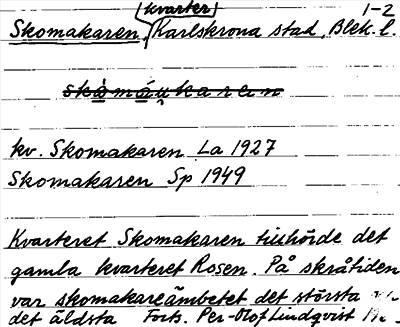 kvarter 1-2
Skomakaren, Karlskrona stad, Blek. l.
skòmáukaren
kv. Skomakaren La 1927
Skomakaren Sp 1949
Kvarteret Skomakaren tillhörde det
gamla kvarteret Rosen. På skråtiden
var skomakareämbetet det största
det äldsta Forts. Per-Olof Lindqvist